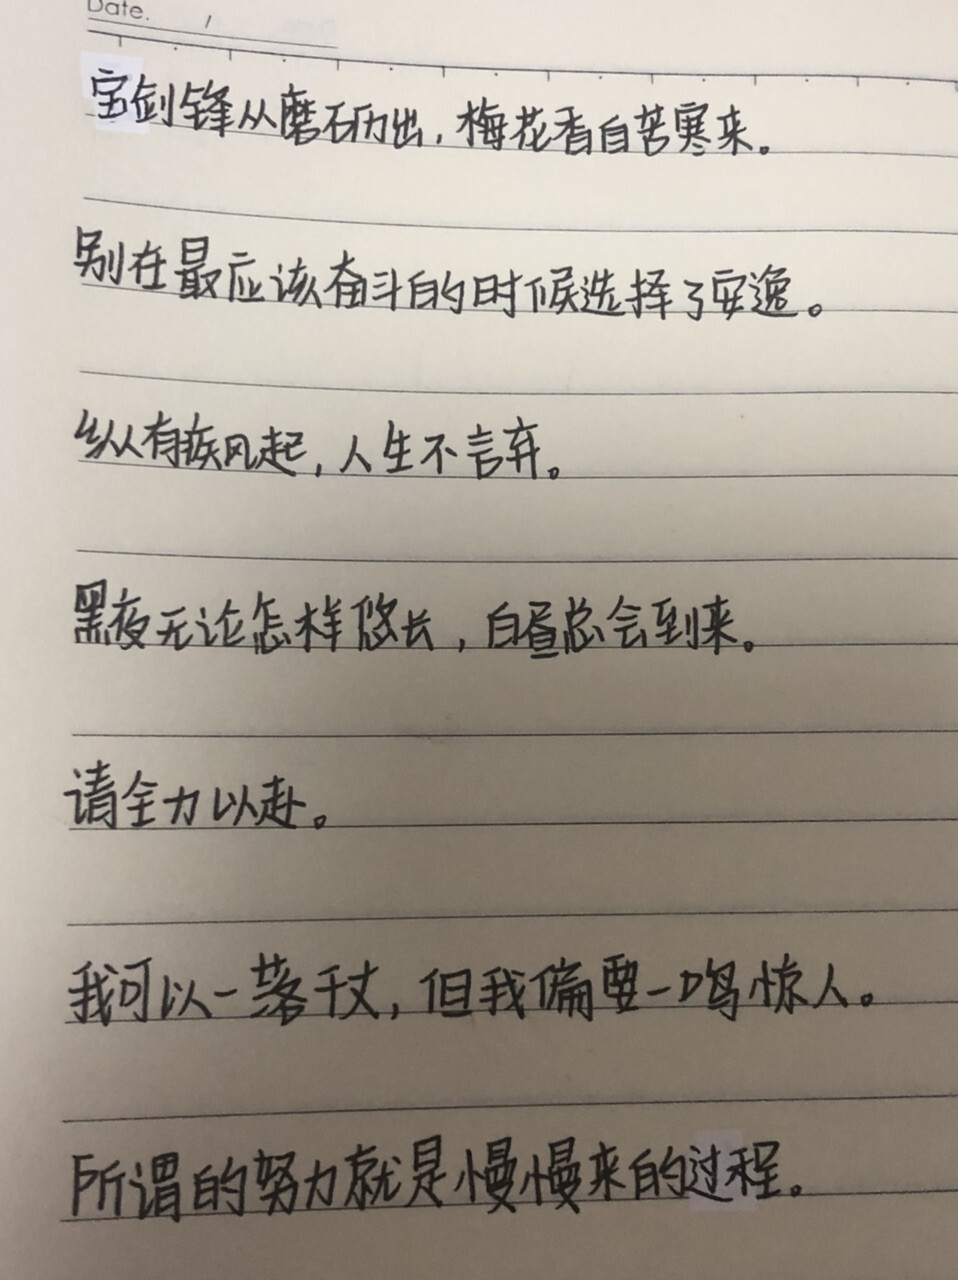 Date. /
宝剑锋从磨砺出，梅花香自苦寒来。
别在最应该奋斗的时候选择了安逸。
纵有疾风起，人生不言弃。
黑夜无论怎样悠长，白昼总会到来。
请全力以赴。
我可以一落千丈，但我偏要一鸣惊人。
所谓的努力就是慢慢来的过程。